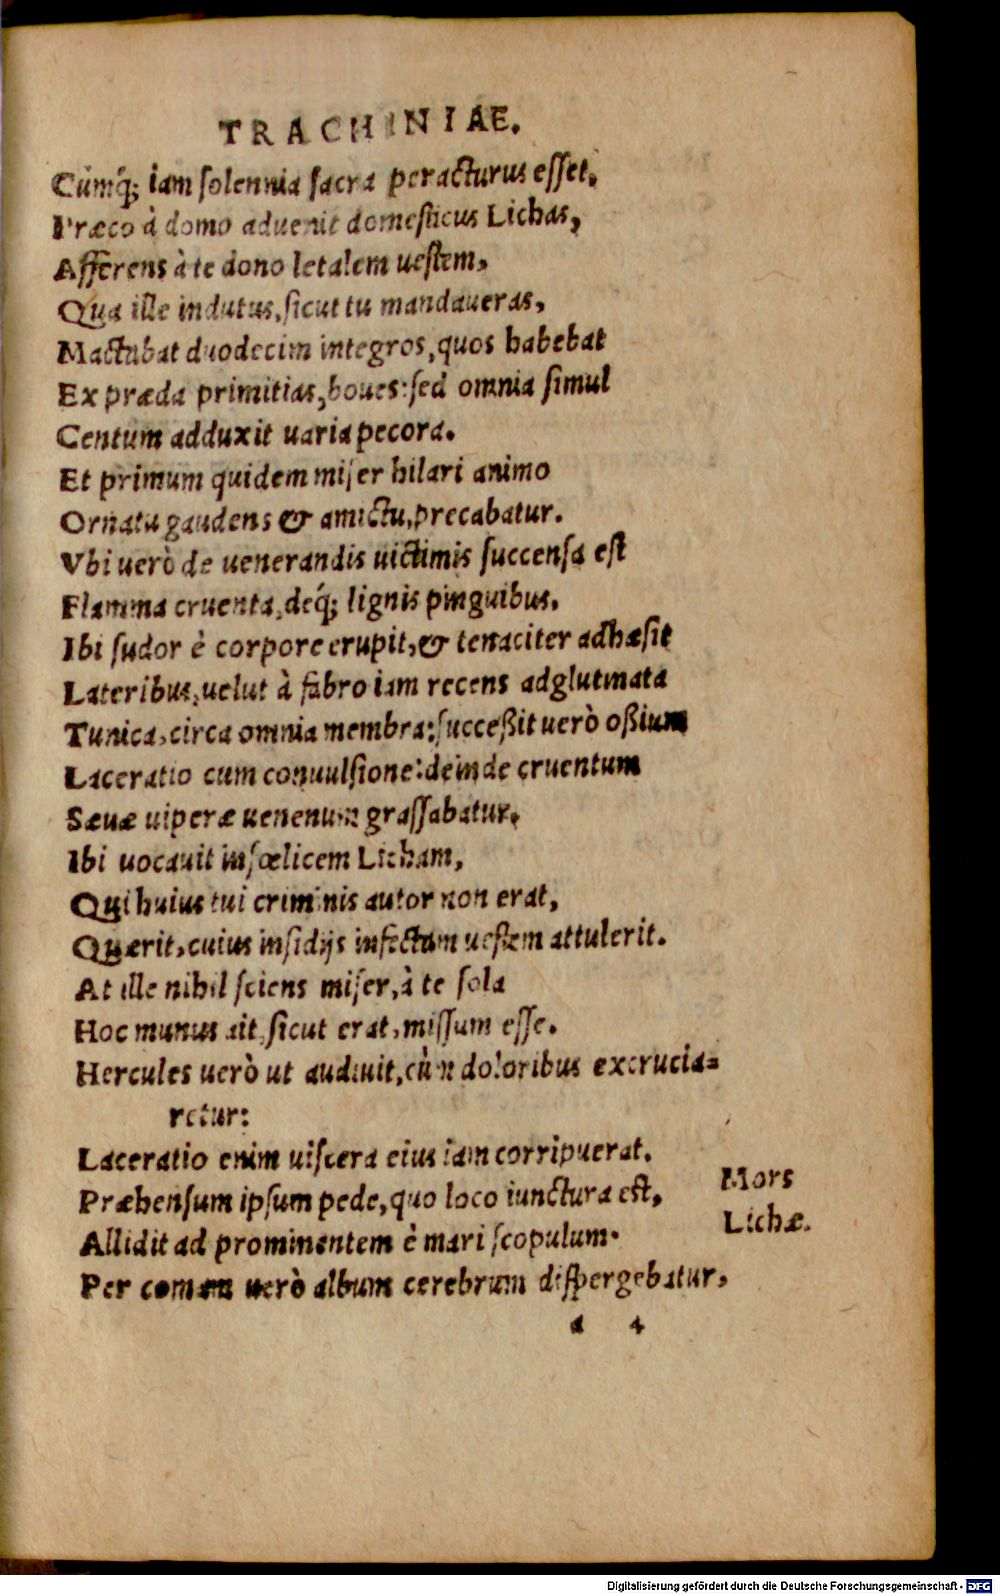 TRACHINIAE.
Cùmq́; iam ſolennia ſacra peracturus eſſet,
Præco à domo aduenit domeſticus Lichas,
Afferens à te dono letalem ueſtem,
Qua ille indutus, ſicut tu mandaueras,
Mactabat duodecim integros, quos habebat
Ex præda primitias, boues: ſed omnia ſimul
Centum adduxit uaria pecora.
Et primum quidem miſer hilari animo
Ornatu gaudens & amictu, precabatur.
Vbi uerò de uenerandis uictimis ſuccenſa eſt
Flamma cruenta, deq́; lignis pinguibus,
Ibi ſudor è corpore erupit, & tenaciter adhæſit
Lateribus, uelut à fabro iam recens adglutinata
Tunica, circa omnia membra: ſucceßit uerò oßium
Laceratio cum conuulſione: deinde cruentum
Sæuæ uiperæ uenenum graſſabatur.
Ibi uocauit infœlicem Licham,
Qui huius tui criminis autor non erat,
Quærit, cuius inſidijs infectam ueſtem attulerit.
At ille nihil ſciens miſer, à te ſola
Hoc munus ait, ſicut erat, miſſum eſſe.
Hercules uerò ut audiuit, cùm doloribus excrucia=
retur:
Laceratio enim uiſcera eius iam corripuerat.
Præhenſum ipſum pede, quo loco iunctura eſt,
Mors
Lichæ.
Allidit ad prominentem è mari ſcopulum.
Per comam uerò album cerebrum diſpergebatur,
a 4
Digitalisierung gefördert durch die Deutsche Forschungsgemeinschaft - DFG